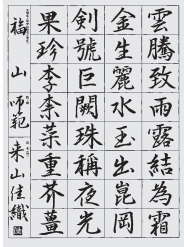 雲騰致雨露結為霜
金生麗水玉出崑岡
劍號巨闕珠稱夜光
果珍李柰菜重芥薑
福山師範来山佳織